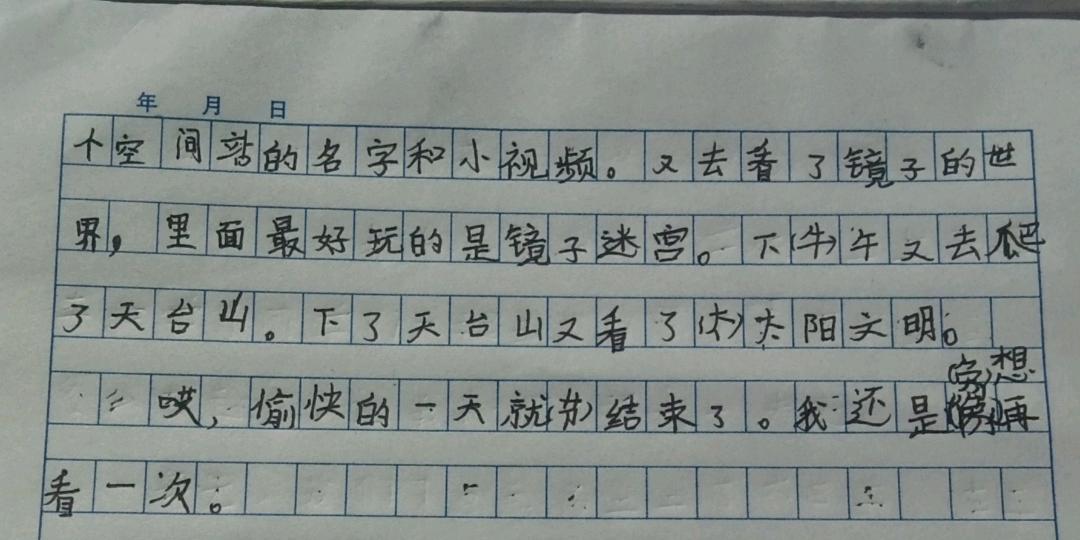 年 月 日
个空间站的名字和小视频。又去看了镜子的世
界，里面最好玩的是镜子迷宫。下(牛)午又去爬
了天台山。下了天台山又看了(大)太阳文明。
哎，偷快的一天就结束了。我还是想再
看一次。